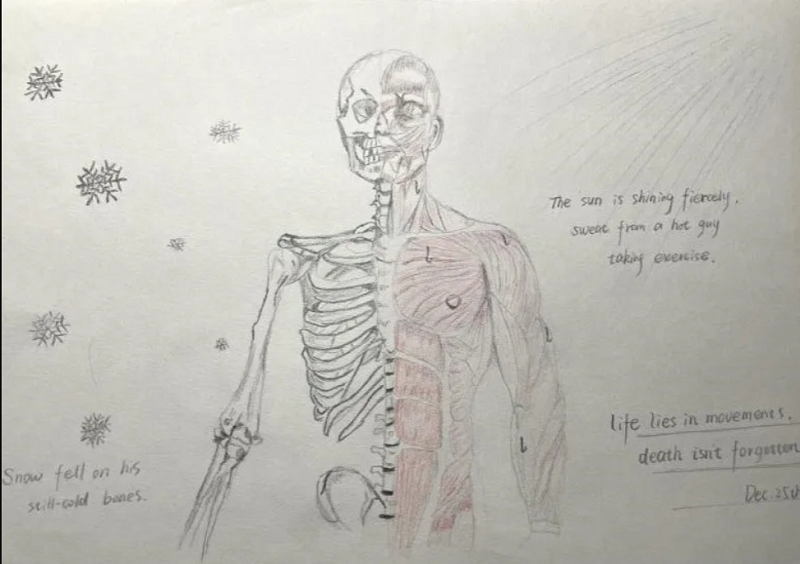 The sun is shining fiercely,
sweat from a hot guy
taking exercise.
life lies in movements,
death isn't forgotten
Dec. 25th
Snow fell on his
still-cold bones.